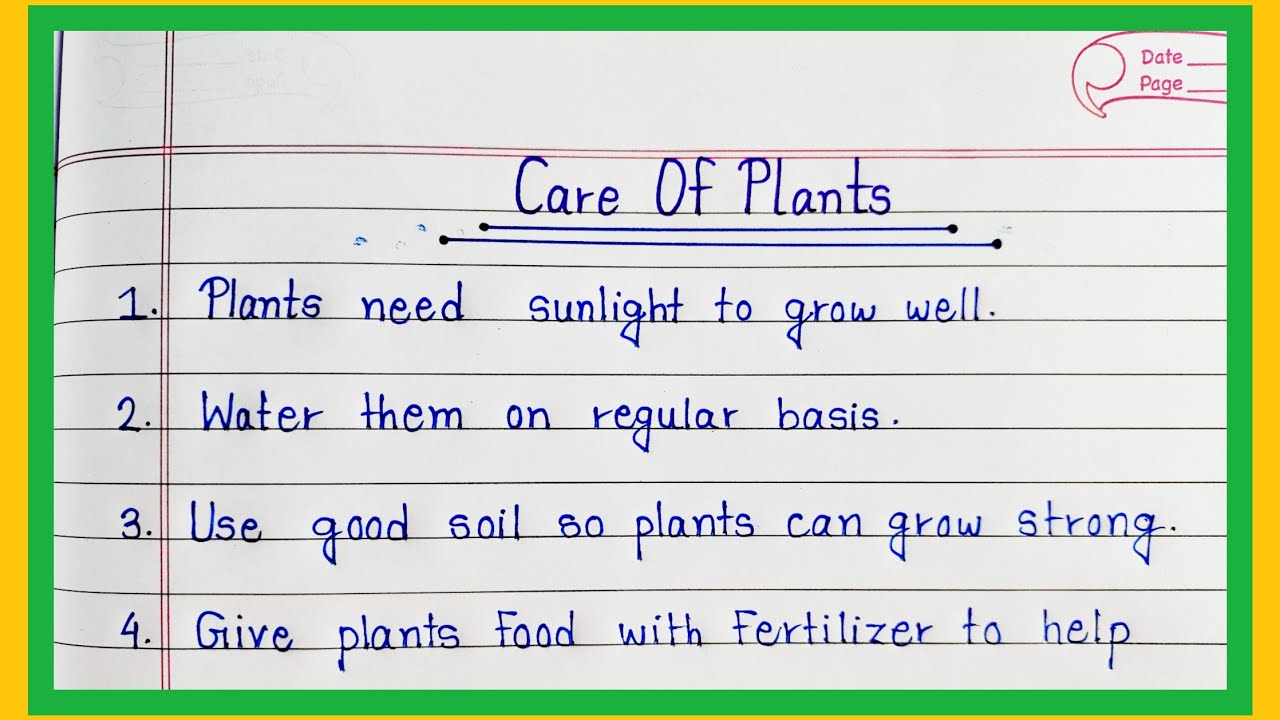 Date
Page
Care Of Plants
1. Plants need sunlight to grow well.
2. Water them on regular basis.
3. Use good soil so plants can grow strong.
4. Give plants food with fertilizer to help